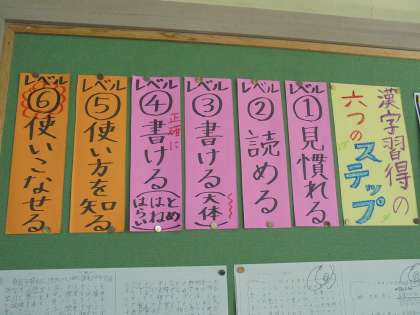 漢字習得の
六つの
ステップ
レベル
①見慣れる
レベル
②読める
レベル
③書ける(大体)
レベル
④書ける
正確に
(とめ
はね
はらい)
レベル
⑤使い方を知る
レベル
⑥使いこなせる